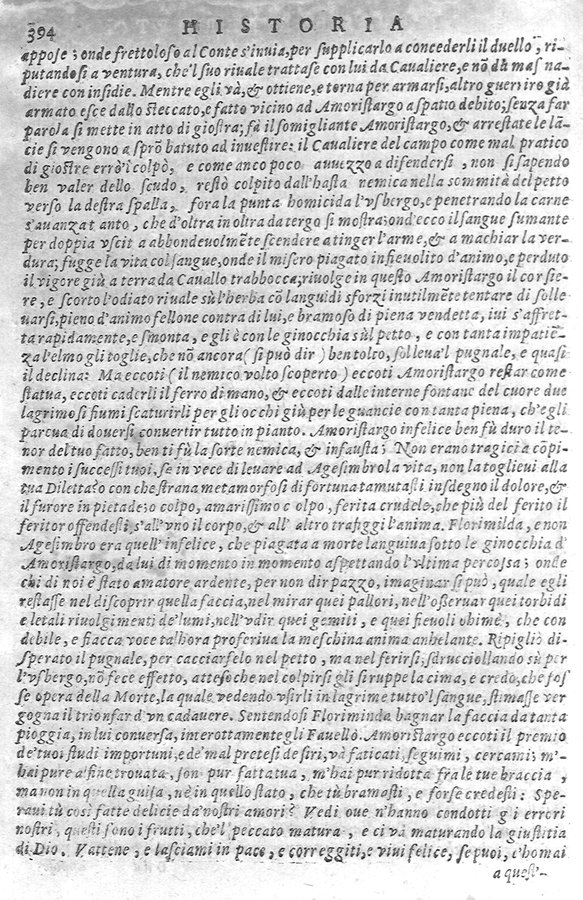 394 HISTORIA
appose; onde frettoloso al Conte s'inuia, per supplicarlo a concederli il duello, ri-
putandosi a ventura, che'l suo riuale trattasse con lui da Caualiere, e nõ da mas na-
diere con insidie. Mentre egli và, & ottiene, e torna per armarsi, altro guerriero già
armato esce dallo steccato, e fatto vicino ad Amoristargo a spatio debito; senza far
parola si mette in atto di giostra; fà il somigliante Amoristargo, & arrestate le lã-
cie si vengono a sprõ batuto ad inuestire: il Caualiere del campo come mal pratico
di giostre errò'l colpò, e come anco poco auuezzo a difendersi, non si sapendo
ben valer dello scudo, restò colpito dall'hasta nemica nella sommità del petto
verso la destra spalla, fora la punta homicida l'vsbergo, e penetrando la carne
s'auanzat anto, che d'oltra in oltra da tergo si mostra; ond'ecco il sangue fumante
per doppia vscit a abbondeuolmẽte scendere a tinger l'arme, & a machiar la ver-
dura; fugge la vita col sangue, onde il misero piagato infieuolito d'animo, e perduto
il vigore giù a terra da Cauallo trabbocca; riuolge in questo Amoristargo il corsie-
re, e scorto l'odiato riuale sù l'herba cõ languidi sforzi inutilmẽte tentare di solle-
uarsi, pieno d'animo fellone contra di lui, e bramoso di piena vendetta, iui s'affret-
ta rapidamente, e smonta, e gli è con le ginocchia sùl petto, e con tanta impatiẽ-
za l'elmo gli toglie, che nõ ancora (si può dir) ben tolto, solleua'l pugnale, e quasi
il declina: Ma eccoti (il nemico volto scoperto) eccoti Amoristargo restar come
statua, eccoti caderli il ferro di mano, & eccoti dalle interne fontane del cuore due
lagrimosi fiumi scaturirli per gli occhi giù per le guancie con tanta piena, ch'egli
parcua di douersi conuertir tutto in pianto. Amoristargo infelice ben fù duro il te-
nor del tuo fatto, ben ti fù la sorte nemica, & infausta; Non erano tragici a cõpi-
mento i successi tuoi, se in vece di leuare ad Agesimbro la vita, non la toglieui alla
tua Diletta? o con che strana metamorfosi di fortuna tamutasti insdegno il dolore, &
il furore in pietade? o colpo, amarissimo c olpo, ferita crudele, che più del ferito il
feritor offendesti, s'all'vno il corpo, & all' altro trafiggi l'anima. Florimilda, e non
Agesimbro era quell' infelice, che piagata a morte languiua sotto le ginocchia d'
Amoristargo, da lui di momento in momento aspettando l'vltima percossa; onde
chi di noi è stato amatore ardente, per non dir pazzo, imaginar si può, quale egli
restasse nel discoprir quella faccia, nel mirar quei pallori, nell'osseruar quei torbidi
e letali riuolgimenti de'lumi, nell'vdir quei gemiti, e quei fieuoli ohimè, che con
debile, e fiacca voce talhora proferiua la meschina anima anhelante. Ripigliò di-
sperato il pugnale, per cacciarselo nel petto, ma nel ferirsi, sdrucciollando sù per
l'vsbergo, nõ fece effetto, atteso che nel colpirsi gli si ruppe la cima, e credo, che fos'
se opera della Morte, la quale vedendo vsirli in lagrime tutto'l sangue, stimasse ver
gogna il trionfar d'vn cadauere. Sentendosi Floriminda bagnar la faccia da tanta
pioggia, in lui conuersa, interottamente gli Fauellò. Amoristargo eccoti il premio
de'tuoi studi importuni, e de'mal pretesi desiri, và faticati, seguimi, cercami; m'-
hai pure a fine trouata, son pur fatta tua, m'hai pur ridotta fra le tue braccia,
ma non in quella guisa, nè in quello stato, che tù bramasti, e forse credesti: Spe-
raui tù così fatte delicie da'nostri amori? Vedi oue n'hanno condotti gli errori
nostri, questi sono i frutti, che'l peccato matura, e ci và maturando la giustitia
di Dio. Vattene, e lasciami in pace, e correggiti, e viui felice, se puoi, c'homai
a quest'-